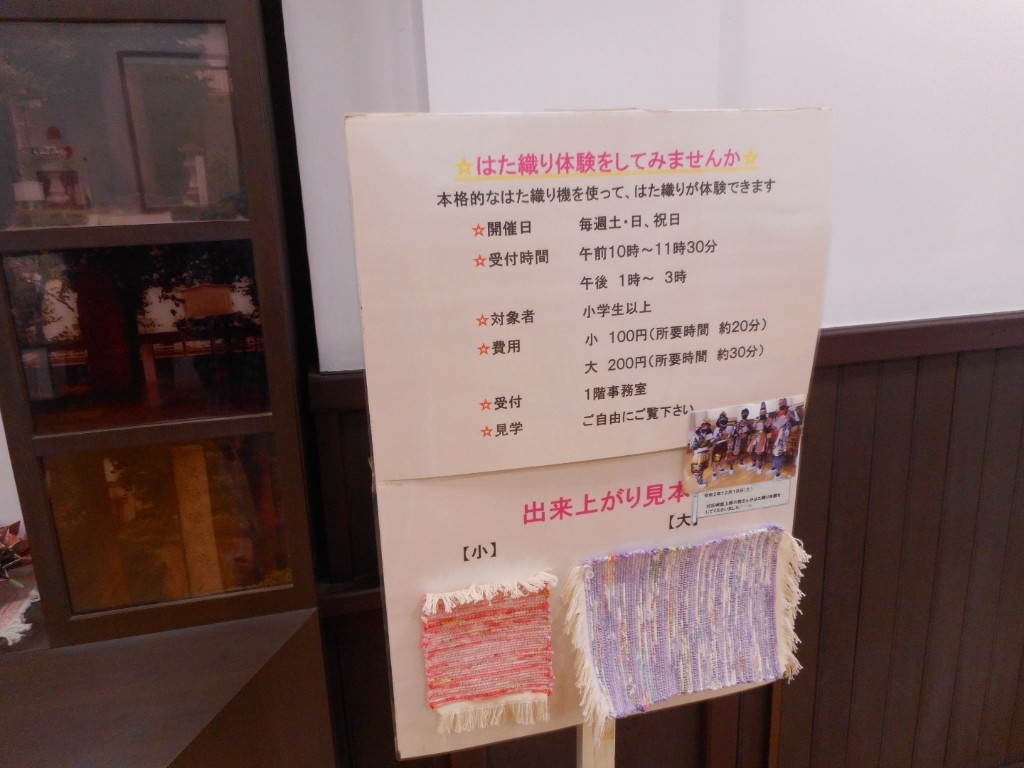 ☆はた織り体験をしてみませんか☆
本格的なはた織り機を使って、はた織りが体験できます
☆開催日 毎週土・日、祝日
☆受付時間 午前10時～11時30分
午後 1時～ 3時
☆対象者 小学生以上
☆費用 小 100円（所要時間 約20分）
大 200円（所要時間 約30分）
☆受付 1階事務室
☆見学 ご自由にご覧下さい
出来上がり見本
【大】
【小】